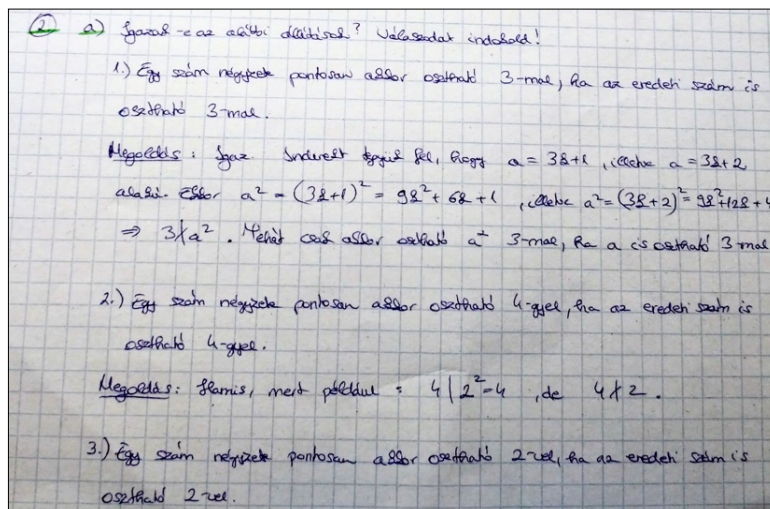 ② a) Igazak-e az alábbi állítások? Válaszodat indokold!
1.) Egy szám négyzete pontosan akkor osztható 3-mal, ha az eredeti szám is
osztható 3-mal.
Megoldás: Igaz. Indirekt tegyük fel, hogy a = 3k+1, illetve a = 3k+2
alakú. Ekkor a² = (3k+1)² = 9k²+6k+1, illetve a² = (3k+2)² = 9k²+12k+4
⇒ 3∤a². Tehát csak akkor osztható a² 3-mal, ha a is osztható 3-mal
2.) Egy szám négyzete pontosan akkor osztható 4-gyel, ha az eredeti szám is
osztható 4-gyel.
Megoldás: Hamis, mert például: 4|2²=4, de 4∤2.
3.) Egy szám négyzete pontosan akkor osztható 2-vel, ha az eredeti szám is
osztható 2-vel.